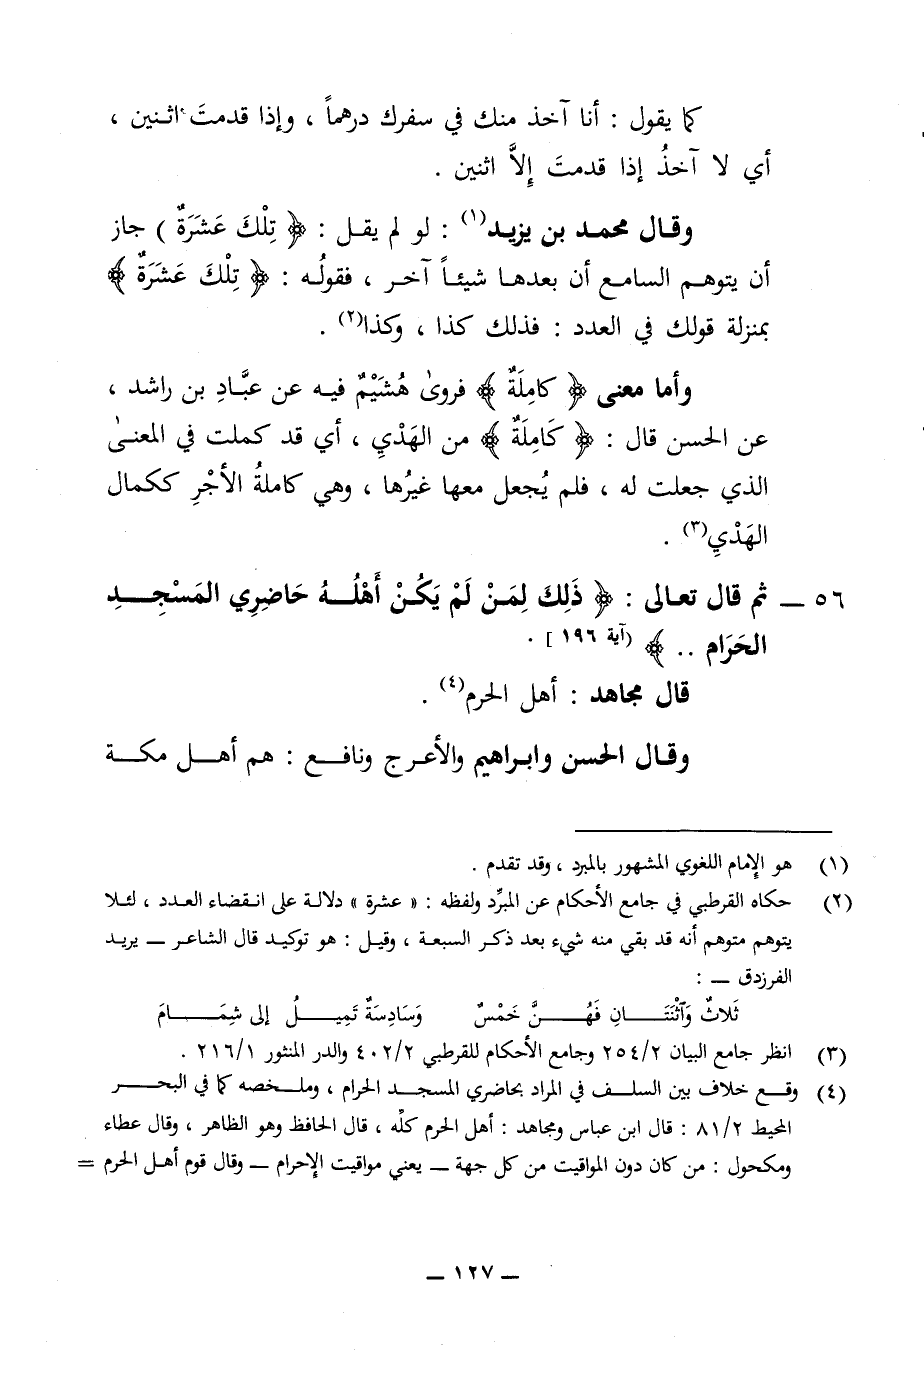 كما يقول : أنا آخذ منك في سفرك درهماً ، وإذا قدمتَ اثنين ،
أي لا آخذُ إذا قدمتَ إلاَّ اثنين .
وقال محمد بن يزيد(١) : لو لم يقل : ﴿ تِلْكَ عَشَرَةٌ ) جاز
أن يتوهم السامع أن بعدها شيئاً آخر ، فقولُه : ﴿ تِلْكَ عَشَرَةٌ ﴾
بمنزلة قولك في العدد : فذلك كذا ، وكذا(٢) .
وأما معنى ﴿ كامِلَةٌ ﴾ فروىٰ هُشَيْمٌ فيه عن عبَّادِ بن راشد ،
عن الحسن قال : ﴿ كَامِلَةٌ ﴾ من الهَدْيِ ، أي قد كملت في المعنىٰ
الذي جعلت له ، فلم يُجعل معها غيرُها ، وهي كاملةُ الأجْرِ ككمال
الهَدْيِ(٣) .
٥٦ ــ ثم قال تعالى : ﴿ ذَلِكَ لِمَنْ لَمْ يَكُنْ أَهْلُهُ حَاضِرِي المَسْجِدِ
الحَرَام .. ﴾ (آية ١٩٦ ] .
قال مجاهد : أهل الحرم(٤) .
وقال الحسن وابراهيم والأعرج ونافع : هم أهل مكة
(١) هو الإمام اللغوي المشهور بالمبرد ، وقد تقدم .
(٢) حكاه القرطبي في جامع الأحكام عن المبرِّد ولفظه : « عشرة » دلالة على انقضاء العدد ، لئلا
يتوهم متوهم أنه قد بقي منه شيء بعد ذكر السبعة ، وقيل : هو توكيد قال الشاعر ــ يريد
الفرزدق ــ :
ثَلاثٌ وَآثْنَتَانِ فَهُنَّ خَمْسٌ وَسَادِسَةٌ تَمِيلُ إلى شِمَامَ
(٣) انظر جامع البيان ٢٥٤/٢ وجامع الأحكام للقرطبي ٤٠٢/٢ والدر المنثور ٢١٦/١ .
(٤) وقع خلاف بين السلف في المراد بحاضري المسجد الحرام ، وملخصه كما في البحر
المحيط ٨١/٢ : قال ابن عباس ومجاهد : أهل الحرم كلِّه ، قال الحافظ وهو الظاهر ، وقال عطاء
ومكحول : من كان دون المواقيت من كل جهة ــ يعني مواقيت الإحرام ــ وقال قوم أهل الحرم =
ــ ١٢٧ ــ